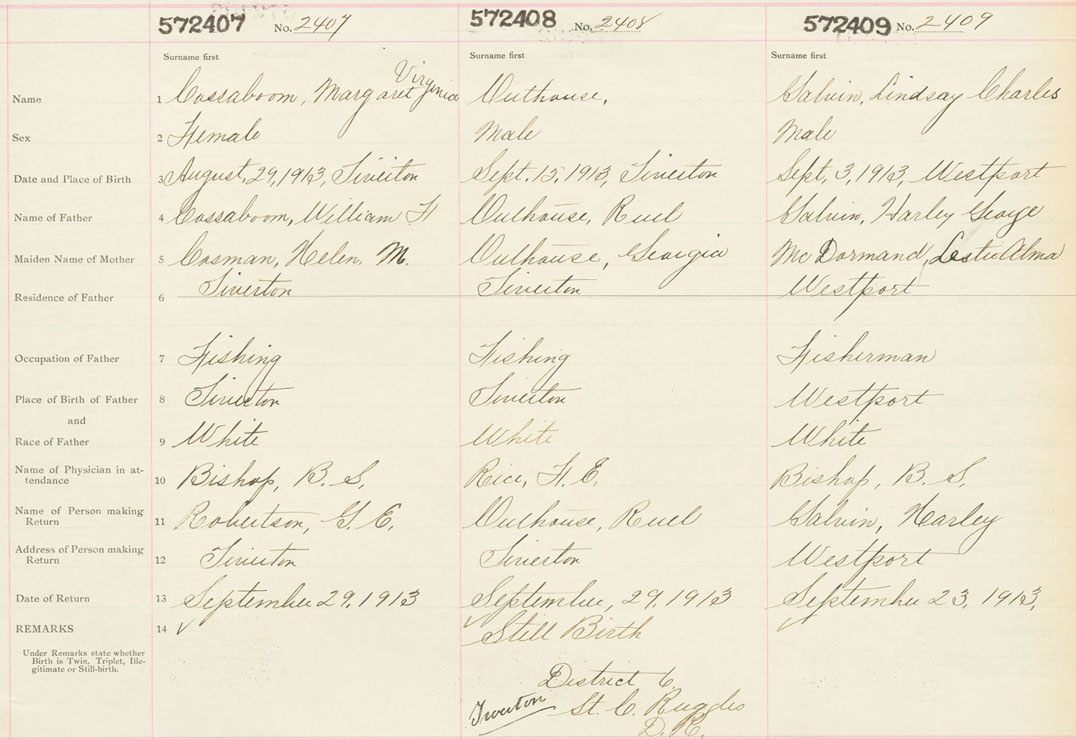 572407 No. 2407 572408 No. 2408 572409 No. 2409
Surname first Surname first Surname first
Virginia
Name 1 Cossaboom, Margaret Outhouse, Galvin, Lindsay Charles
Sex 2 Female Male Male
Date and Place of Birth 3 August, 29, 1913, Tiverton Sept. 15, 1913, Tiverton Sept, 3, 1913, Westport
Name of Father 4 Cossaboom, William H Outhouse, Ruel Galvin, Harley George
Maiden Name of Mother 5 Cosman, Helen. M. Outhouse, Georgia McDormand, Leslie Alma
Residence of Father 6 Tiverton Tiverton Westport
Occupation of Father 7 Fishing Fishing Fisherman
Place of Birth of Father 8 Tiverton Tiverton Westport
and
Race of Father 9 White White White
Name of Physician in at-
tendance 10 Bishop, B. S. Rice, F. E. Bishop, B. S.
Name of Person making
Return 11 Robertson, G. E. Outhouse, Ruel Galvin, Harley
Address of Person making
Return 12 Tiverton Tiverton Westport
Date of Return 13 September 29, 1913 September, 29, 1913 September 23, 1913,
REMARKS 14 ✓ Still Birth
Under Remarks state whether
Birth is Twin, Triplet, Ille-
gitimate or Still-birth.
District 6
Tiverton St. C. Ruggles
D. R.